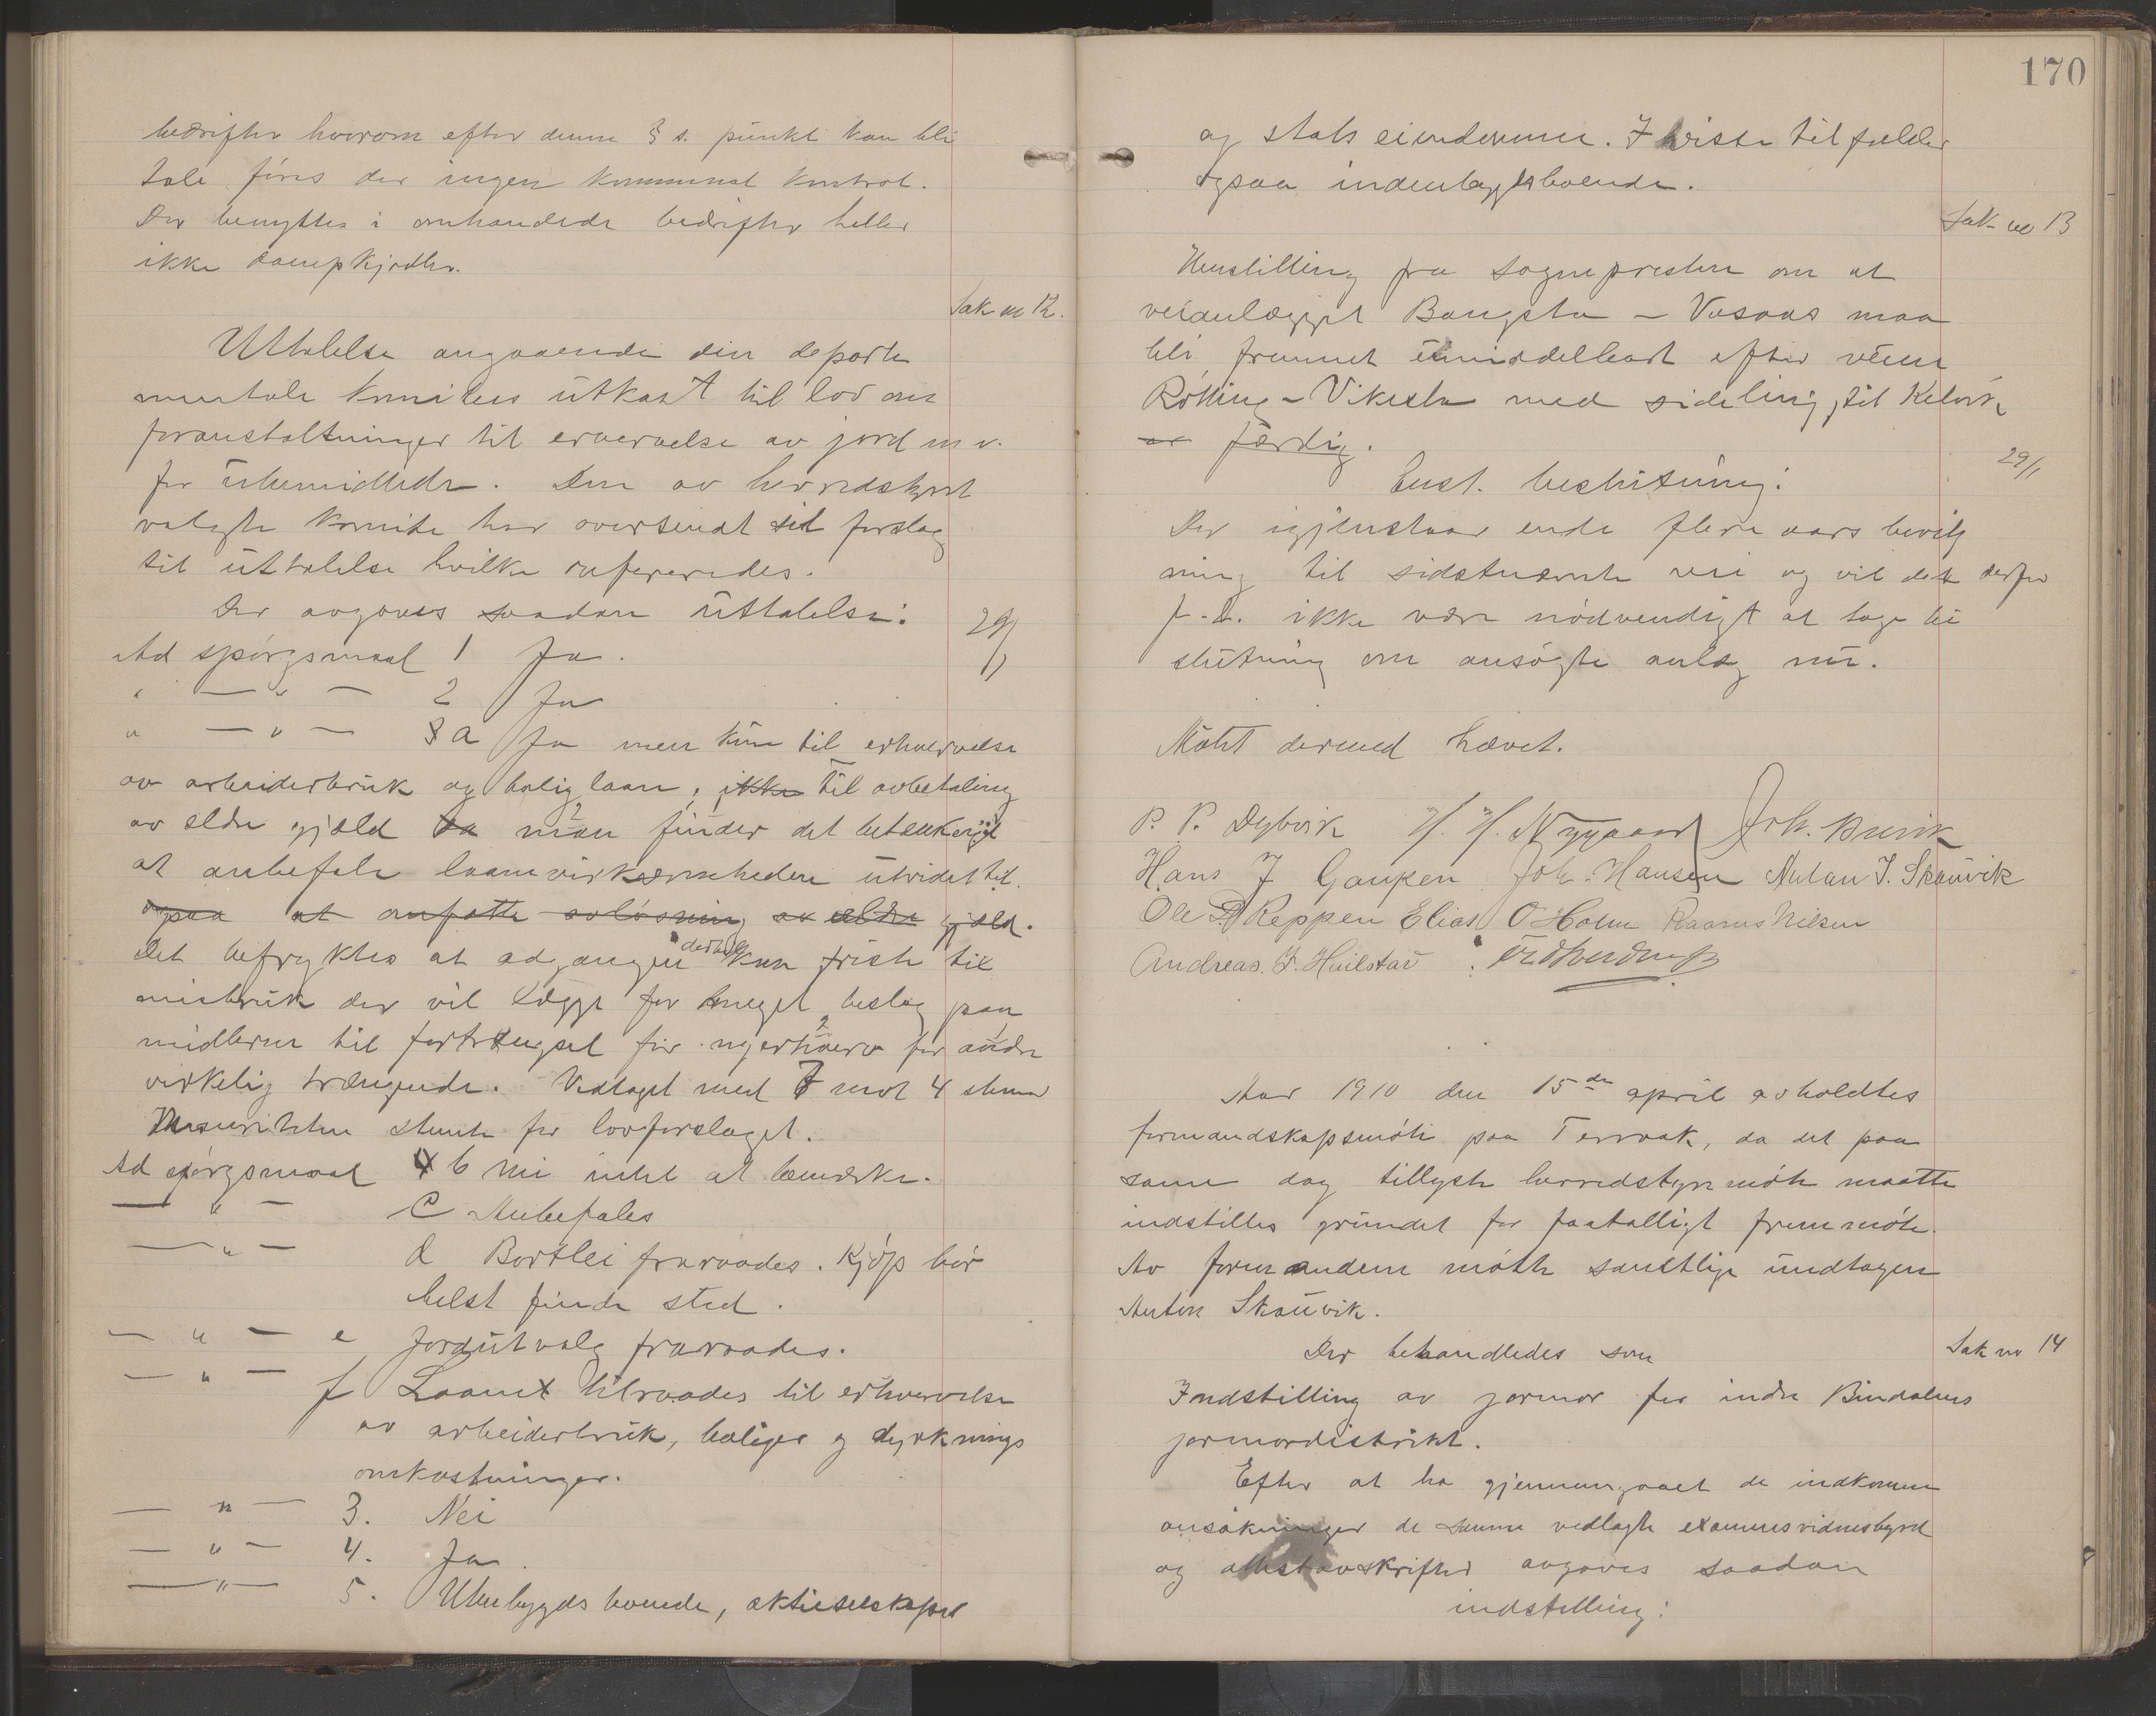 bedrifter hvorom efter denne § s. punkt kan bli
tale føres der ingen kommunal kontrol.
Der benyttes i omhandlede bedrifter heller
ikke dampkjedler.
Sak nr 12.
Uttalelse angaaende den departe
mentale komites utkast til lov om
foranstaltninger til ervervelse av jord m v.
for ubemidlede. Den av herredstyret
valgte komite har oversendt sit forslag
til uttalelse hvilke refereredes.
Der avgaves saadan uttalelse:
29/1
Ad spørgsmaal 1 Ja.
" — " — 2 Ja
" — " — 3 a Ja men kun til erhvervelse
av arbeiderbruk og boliglaan, ikke til avbetaling
av ældre gjæld da man finder det betænkeligt
at anbefale laanevirksomheden utvidet til.
ogsaa at omfatte avløsning av ældre gjæld.
Det befryktes at adgangen dertil kan friste til
misbruk der vil lægge for meget beslag paa
midlerne til fortrængsel for nyerhverv for andre
virkelig trængende. Vedtaget med 7 mot 4 stemmer
Minoriteten stemte for lovforslaget.
Ad spørgsmaal 4 b Nei intet at bemerke.
— " — C Anbefales
— " — d Bortlei fraraades. Kjøp bør
helst finde sted.
— " — e Jordutvalg fraraades.
— " — f Laanet tilraades til erhvervelse
av arbeiderbruk, boliger og dyrknings
omkostninger.
— " — 3. Nei
— " — 4. Ja.
— " — 5. Utenbygds boende, aktieselskaper
170
og stats eiendomme. I visse tilfælder
ogsaa indenbygdsboende.
Sak no 13
Henstilling fra sognepresten om at
veianlægget Bangstad - Vasaas maa
bli fremmet umiddelbart efter veien
Røtting - Vikestad med sidelinj til Kelvik
er færdig.
29/1
Enst. beslutning:
Der igjenstaar ende flere aars bevilg
ning til sidstnævnte vei og vil det derfor
f. t. ikke være nødvendigt at tage be
slutning om ansøgte anlæg nu.
Møtet dermed hævet.
P. P. Dybvik Nygaard Joh.
Hans J Gangen Joh. Hansen Anton J. Skauvik
Ole P Reppen Elias O Holm Rasmus Nilsen
Andreas. J. Heilstad
Aar 1910 den 15de april avholdtes
formandskapsmøte paa Terraak, da det paa
samme dag tillyste herredstyremøte maatte
indstilles grundet for faatalligt fremmøte.
Av formændene møtte samtlige undtagen
Anton Skauvik.
Der behandledes som
Sak nr 14
Indstilling av jormor for indre Bindalens
jormordistrikt.
Efter at ha gjennemgaaet de indkomne
ansøkninger de samme vedlagte examensvidnesbyrd
og attestavskrifter avgaves saadan
indstilling: